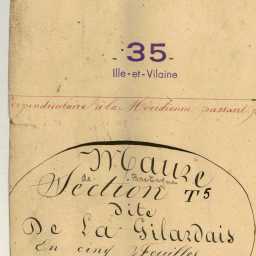 - 35 -
Ille-et-Vilaine
Perpendiculaire à la Méridienne passant p
Maure
de Bretagne
Section T5
Dite
De La Gilardais
En cinq feuilles